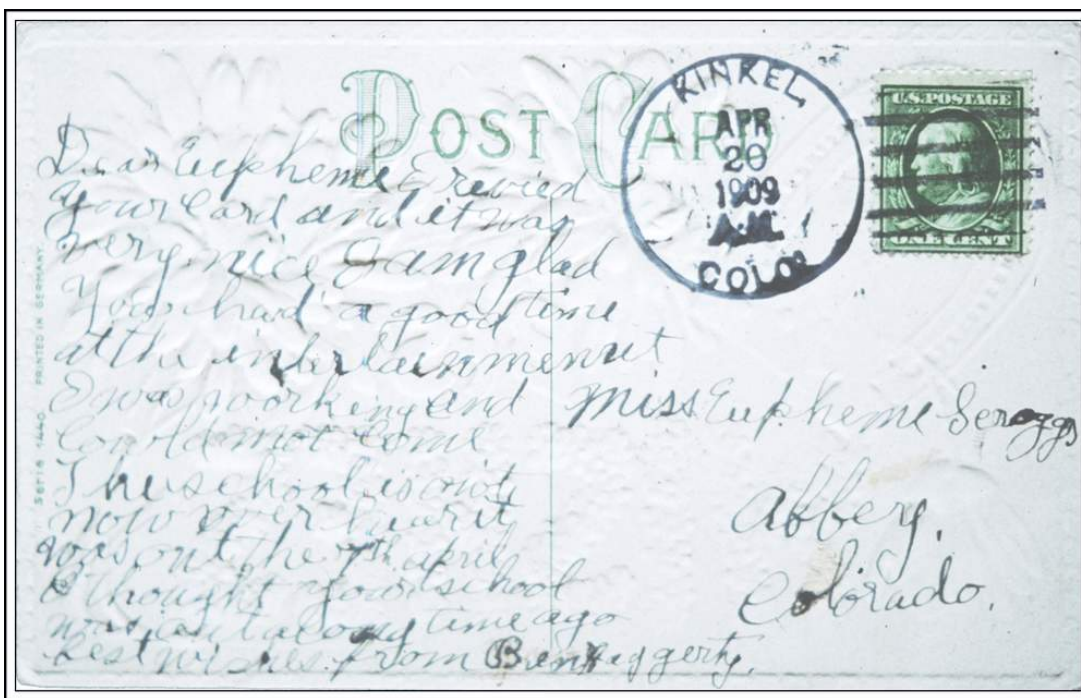 POST CARD
KINKEL,
APR
20
1909
A.M.
COLO.
U.S. POSTAGE
ONE CENT
Dear Eupheme I revied
Your Card and it was
very nice I am glad
You had a good time
at the intertainmenut
I was working and
Could not Come
The school is out
now over
was out the 7th april
I thought your school
was out a long time ago
best wishes from Ben
Miss Eupheme Scroggs
Abbery,
Colorado.
PRINTED IN GERMANY